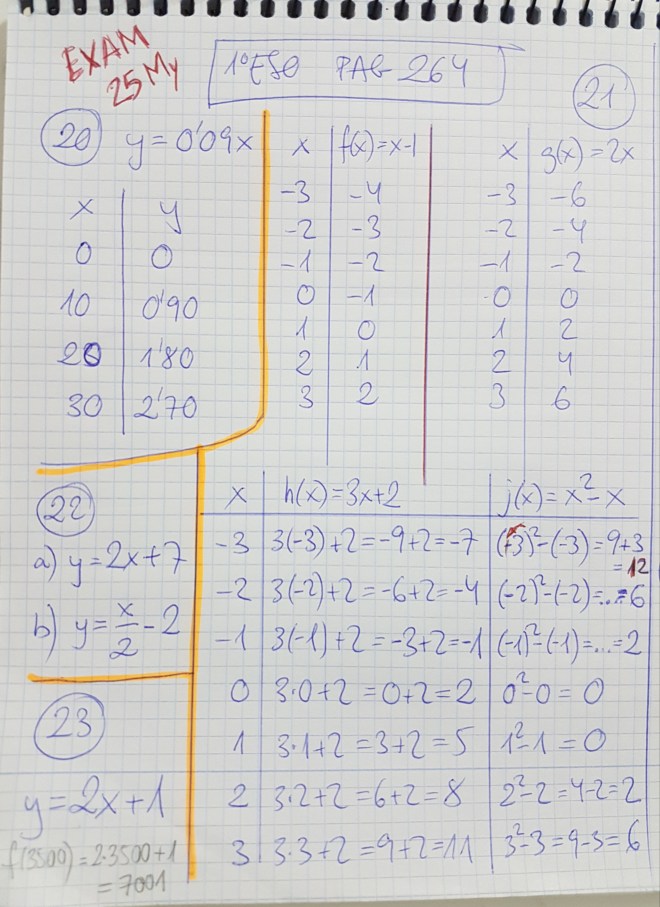 EXAM
25 My
1º ESO PAG 264
21
20 y=0'09x
x y
0 0
10 0'90
20 1'80
30 2'70
x f(x)=x-1
-3 -4
-2 -3
-1 -2
0 -1
1 0
2 1
3 2
x g(x)=2x
-3 -6
-2 -4
-1 -2
0 0
1 2
2 4
3 6
22
a) y=2x+7
b) y=x/2-2
23
y=2x+1
f(3500)=2·3500+1
=7001
x h(x)=3x+2 j(x)=x²-x
-3 3(-3)+2=-9+2=-7 (-3)²-(-3)=9+3
=12
-2 3(-2)+2=-6+2=-4 (-2)²-(-2)=...=6
-1 3(-1)+2=-3+2=-1 (-1)²-(-1)=...=2
0 3·0+2=0+2=2 0²-0=0
1 3·1+2=3+2=5 1²-1=0
2 3·2+2=6+2=8 2²-2=4-2=2
3 3·3+2=9+2=11 3²-3=9-3=6